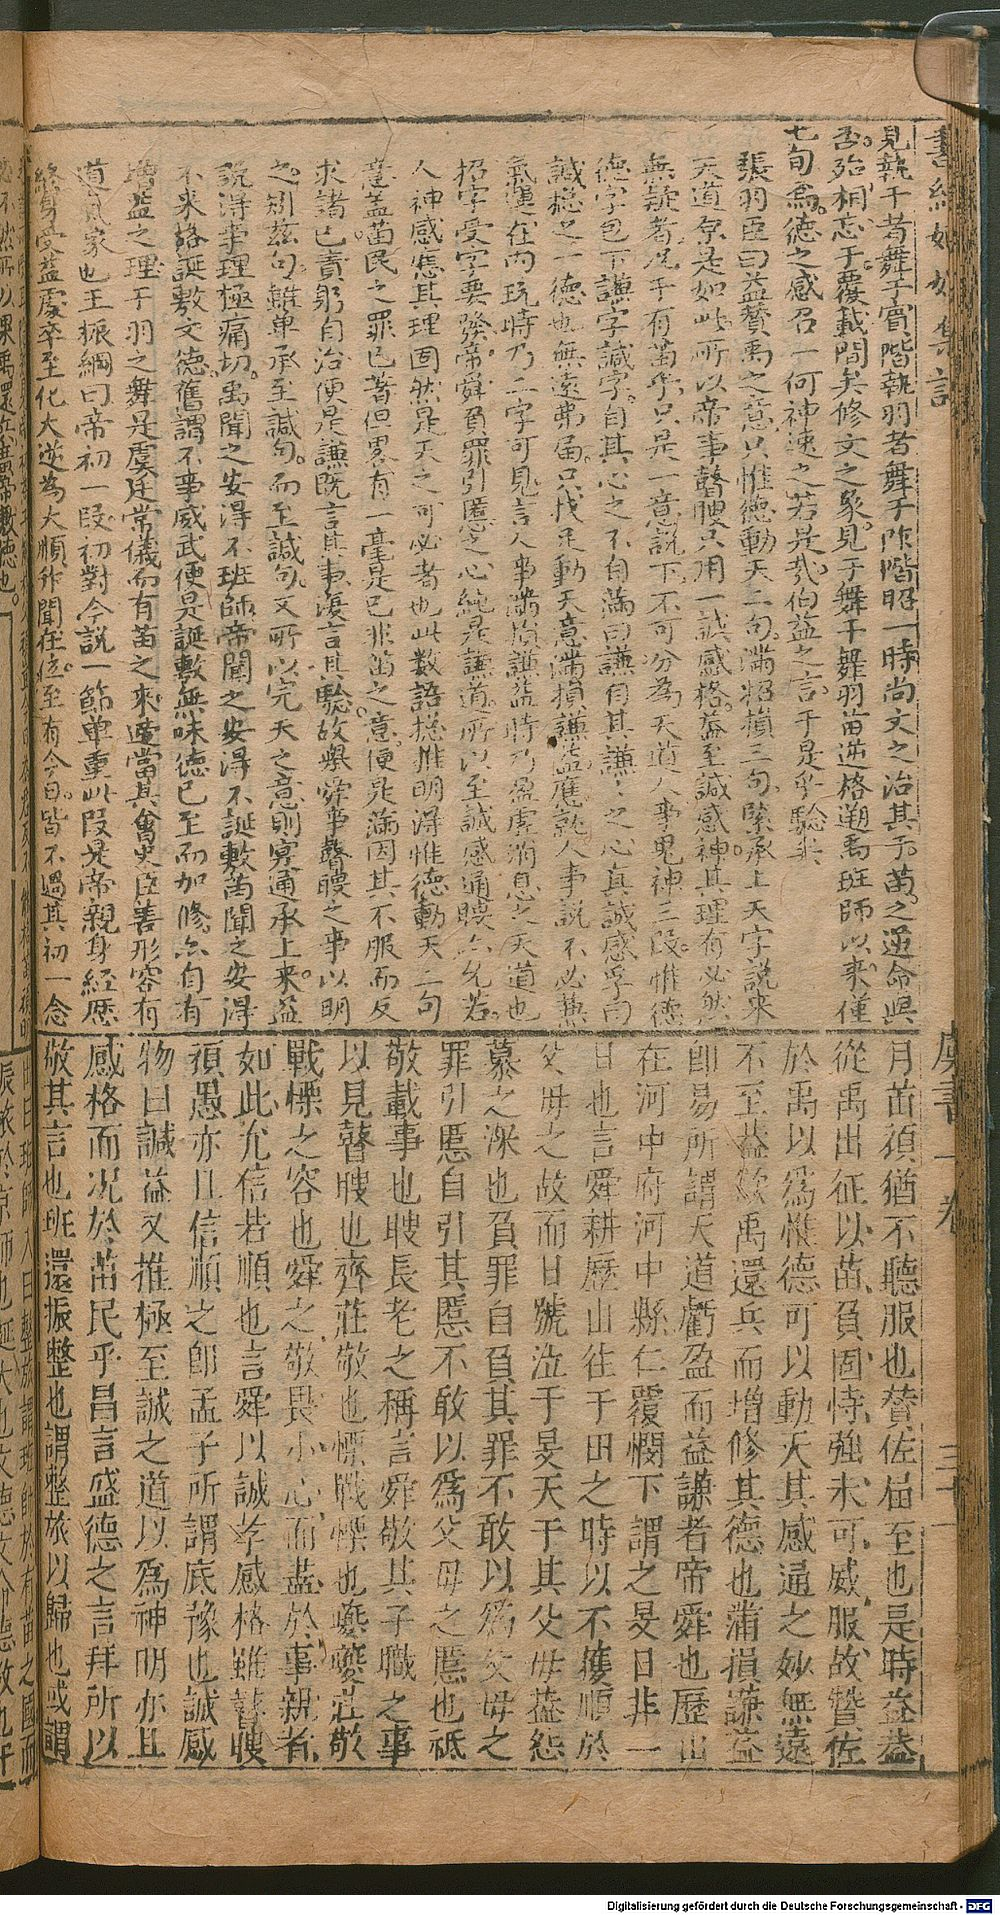 見執干者舞于賓階執羽者舞于阼階昭一時尚文之治其于苗之逆命與
否殆相忘于覆載間矣修文之象見于舞干舞羽苗逆格遡禹班師以來僅
七旬焉德之感召一何神速之若是哉伯益之言于是乎驗矣
張羽臣曰益贊禹之意只惟德動天二句滿招損三句緊承上天字說來
天道原是如此所以帝事瞽瞍只用一誠感格益至諴感神其理有必然
無疑者况于有苗乎只是一意說下不可分為天道人事鬼神三段惟德
德字包下謙字諴字自其心之不自滿曰謙自其謙之之心真誠感孚曰
諴總之一德也無遠弗屆只找足動天意滿損謙益應就人事說不必兼
氣運在內玩時乃二字可見言人事滿損謙益時乃盈虛消息之天道也
招字受字要發帝舜負罪引慝之心純是謙道所以至諴感通瞍亦允若
人神感應其理固然是天之可必者也此数語總推明得惟德動天二句
意盖苗民之罪已著但畧有一毫是已非苗之意便是滿因其不服而反
求諸已責躬自治便是謙既言其事復言其驗故舉舜事瞽瞍之事以明
之矧茲句雖单承至諴句而至諴句又所以完天之意則實通承上來益
說得幸理極痛切禹聞之安得不班師帝聞之安得不誕敷苗聞之安得
不來格誕敷文德舊謂不事威武便是誕敷無味德已至而加修亦自有
增益之理干羽之舞是虞廷常儀而有苗之來適當其會史臣善形容有
道氣象也王振綱曰帝初一段初對今說一節单重此段是帝親身經歷
終身受益處卒至化大逆為大順升聞在位至有今日皆不過其初一念
書經妙妙集註
虞書一卷
三十一
月苗頑猶不聽服也賛佐屆至也是時益葢
從禹出征以苗負固恃強未可威服故贊佐
於禹以爲惟德可以動天其感通之妙無遠
不至葢欲禹還兵而增修其德也滿損謙益
卽易所謂天道虧盈而益謙者帝舜也歷山
在河中府河中縣仁覆憫下謂之旻日非一
日也言舜耕歷山往于田之時以不獲順於
父母之故而日號泣于旻天于其父母葢怨
慕之深也負罪自負其罪不敢以爲父母之
罪引慝自引其慝不敢以爲父母之慝也祗
敬載事也瞍長老之稱言舜敬其子職之事
以見瞽瞍也齊莊敬也慄戰慄也夔夔莊敬
戰慄之容也舜之敬畏小心而盡於事親者
如此允信若順也言舜以誠孝感格雖瞽瞍
頑愚亦且信順之卽孟子所謂底豫也諴感
物曰諴益又推極至誠之道以爲神明亦且
感格而况於苗民乎昌言盛德之言拜所以
敬其言也班還振整也謂整旅以歸也或謂
Digitalisierung gefördert durch die Deutsche Forschungsgemeinschaft - DFG